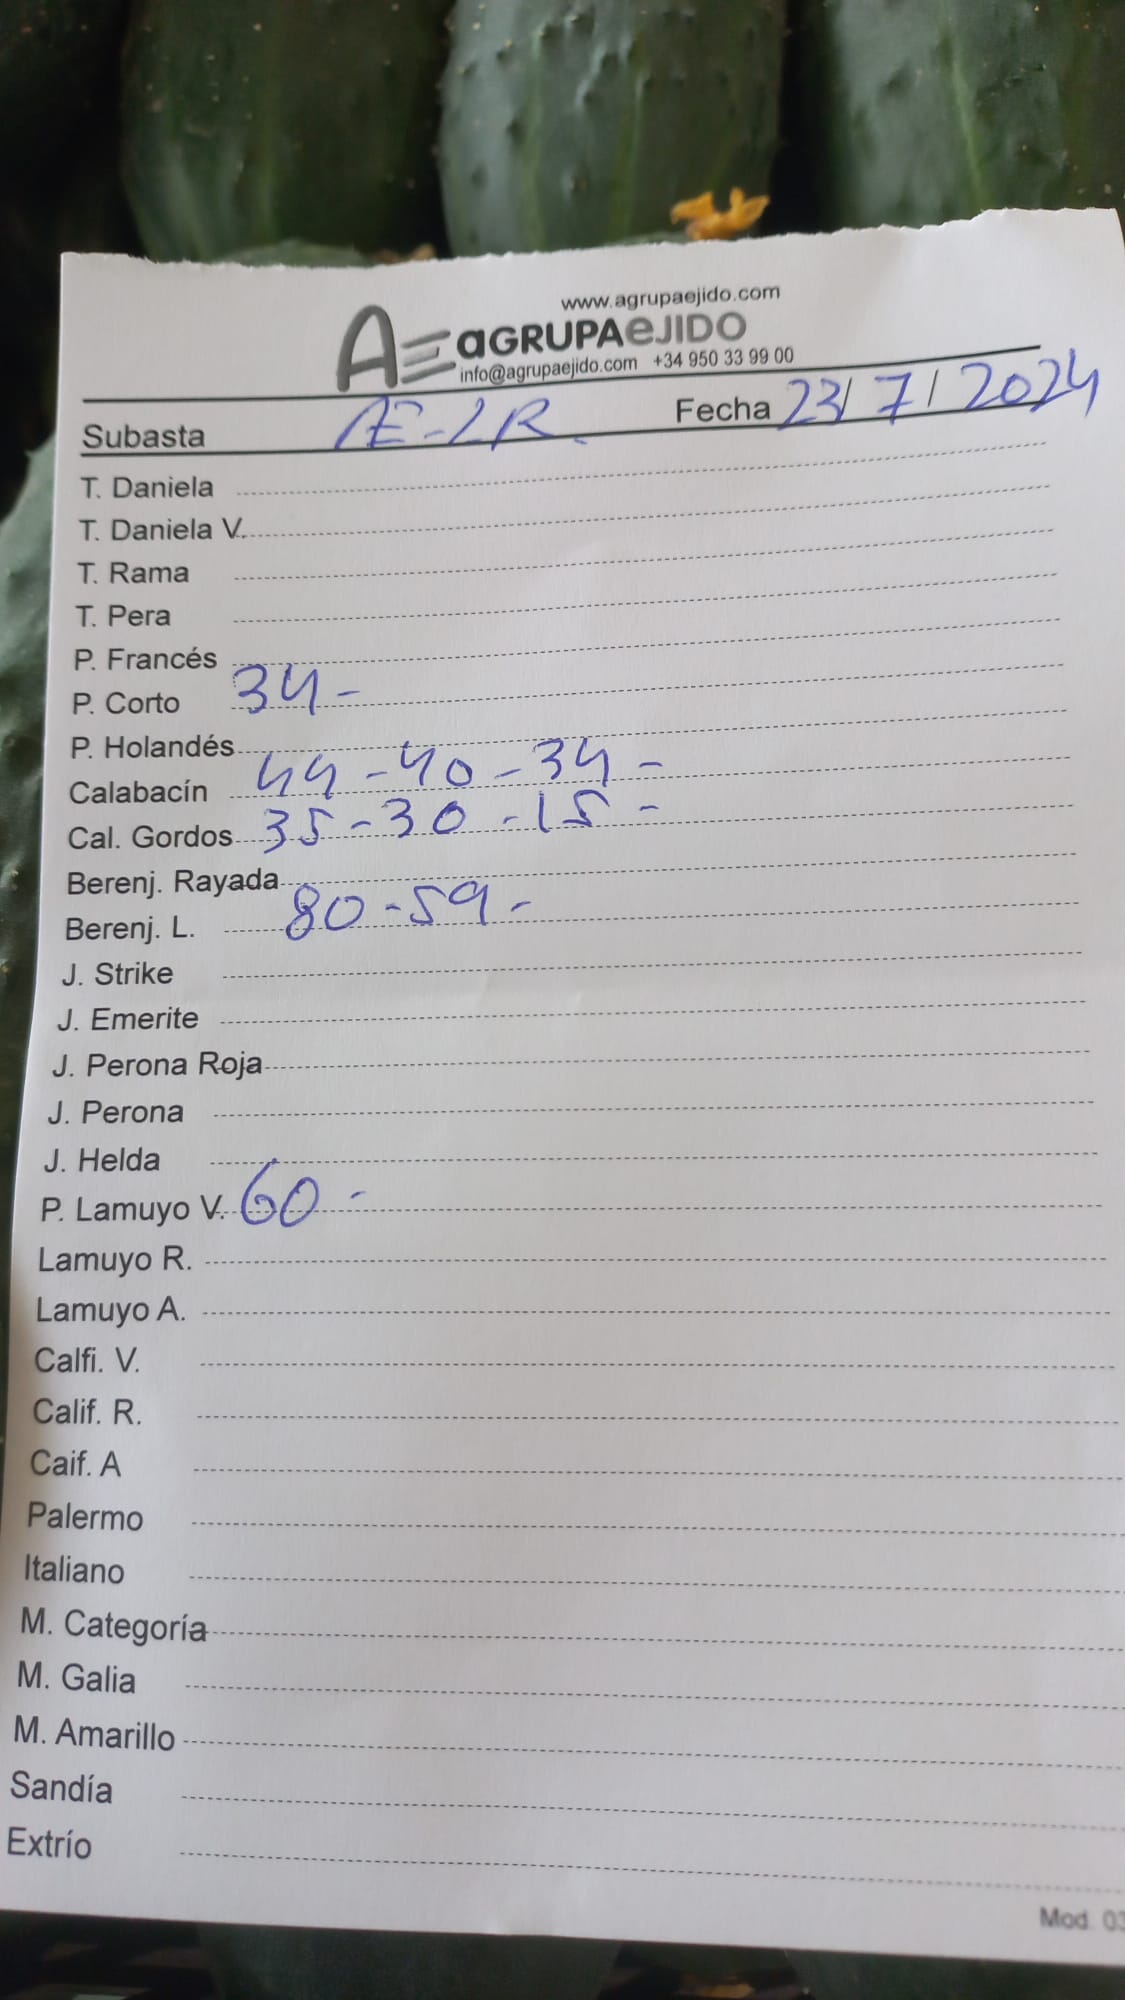 www.agrupaejido.com
AE aGRUPAeJIDO
info@agrupaejido.com +34 950 33 99 00
Subasta AE-LR. Fecha 23/7/2024
T. Daniela
T. Daniela V.
T. Rama
T. Pera
P. Francés
P. Corto 34-
P. Holandés
Calabacín 44-40-34-
Cal. Gordos 35-30-15-
Berenj. Rayada
Berenj. L. 80-59-
J. Strike
J. Emerite
J. Perona Roja
J. Perona
J. Helda
P. Lamuyo V. 60-
Lamuyo R.
Lamuyo A.
Calfi. V.
Calif. R.
Caif. A
Palermo
Italiano
M. Categoría
M. Galia
M. Amarillo
Sandía
Extrío
Mod. 03